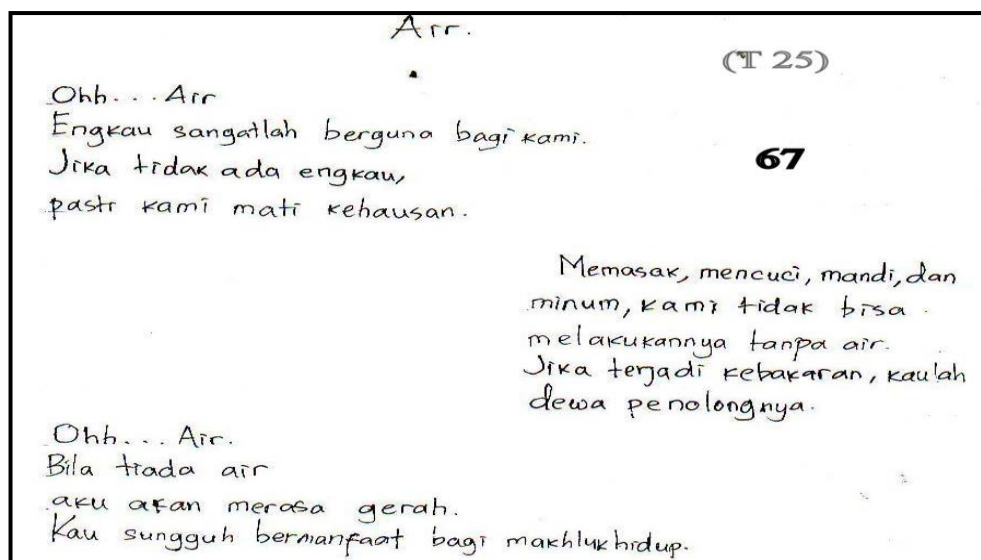 Air.
(T 25)
Ohh... Air
Engkau sangatlah berguna bagi kami.
67
Jika tidak ada engkau,
pasti kami mati kehausan.
Memasak, mencuci, mandi, dan
minum, kami tidak bisa
melakukannya tanpa air.
Jika terjadi kebakaran, kaulah
dewa penolongnya.
Ohh... Air.
Bila tiada air
aku akan merasa gerah.
Kau sungguh bermanfaat bagi makhluk hidup.